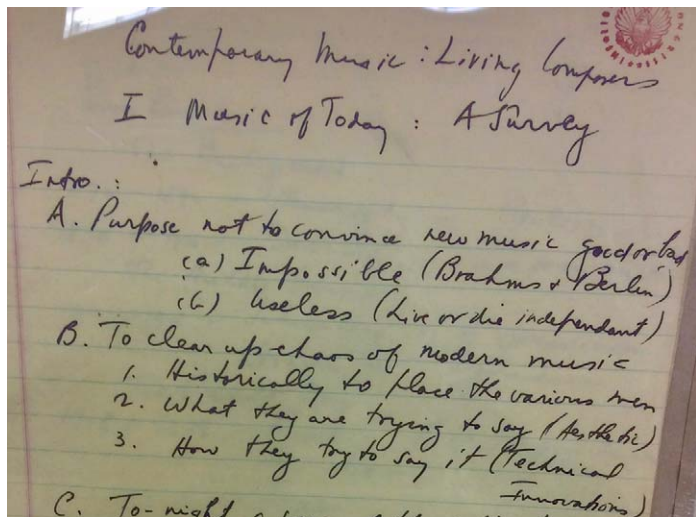 Contemporary Music : Living Composers
I Music of Today : A Survey
Intro. :
A. Purpose not to convince new music good or bad
(a) Impossible (Brahms & Berlin)
(b) Useless (Live or die independant)
B. To clear up chaos of modern music
1. Historically to place the various men
2. What they are trying to say (Aesthetic)
3. How they try to say it (Technical
Innovations)
C. To-night